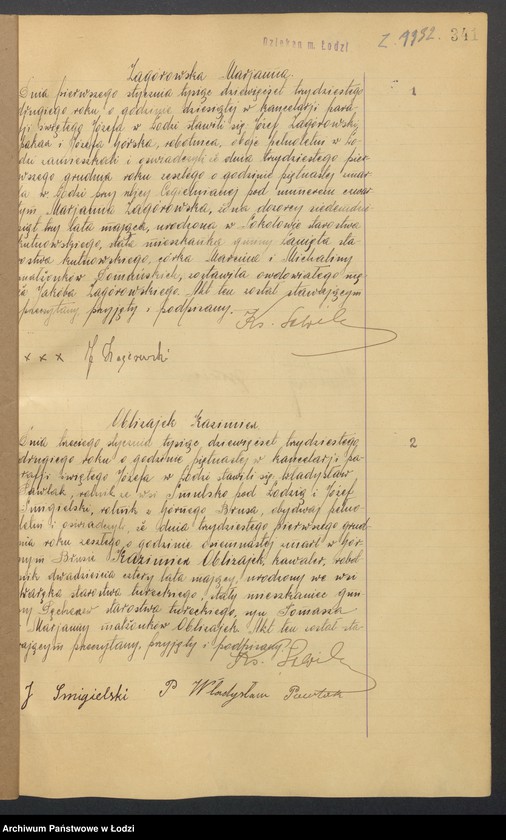 Dziekan m. Łodzi
Z. 1932. 341
Zagórowska Marjanna
1
Dnia pierwszego stycznia tysiąc dziewięćset trzydziestego
drugiego roku o godzinie dziesiątej w kancelarji para-
fji świętego Józefa w Łodzi stawili się: Józef Zagórowski
i Józefa Górska, robotnica, oboje pełnoletni w Ło-
dzi zamieszkali i oświadczyli, iż dnia trzydziestego pier-
wszego grudnia roku zeszłego o godzinie piętnastej umar-
ła w Łodzi przy ulicy Cegielnianej pod numerem
Marjanna Zagórowska, żona dozorcy siedemdzie-
siąt trzy lata mająca, urodzona w Sokołowie starostwa
kutnowskiego, stała mieszkanka gminy Łanięta sta-
rostwa kutnowskiego, córka Marcina i Michaliny
małżonków, zostawiła owdowiałego mę-
ża Jakóba Zagórowskiego. Akt ten został stawającym
przeczytany, przyjęty i podpisany.
Ks.
x x x J Zagórowski
Oblizajek Kazimierz
2
Dnia trzeciego stycznia tysiąc dziewięćset trzydziestego
drugiego roku o godzinie piętnastej w kancelarji pa-
rafji świętego Józefa w Łodzi stawili się: Władysław
Pawlak, rolnik ze wsi Smulsko pod Łodzią i Józef
Smigielski, rolnik z Górnego Brusa, obydwaj pełno-
letni i oświadczyli, iż dnia trzydziestego pierwszego grud-
nia roku zeszłego o godzinie osiemnastej umarł w Gór-
nym Brusie Kazimierz Oblizajek, kawaler, robot-
nik dwadzieścia cztery lata mający, urodzony we wsi
starostwa tureckiego, stały mieszkaniec gmi-
ny starostwa tureckiego, syn Tomasza
i Marjanny małżonków Oblizajek. Akt ten został sta-
wającym przeczytany, przyjęty i podpisany.
Ks.
J Smigielski P Władysław Pawlak
Archiwum Państwowe w Łodzi